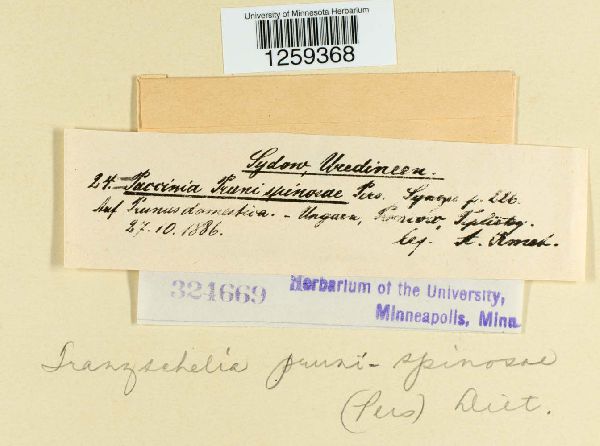 University of Minnesota Herbarium
1259368
Sydow, Uredineen.
24. Puccinia Pruni spinosae Pers. Synops p. 226.
Auf Prunus domestica. - Ungarn,
27. 10. 1886.
leg. A. Kmet.
324669 Herbarium of the University,
Minneapolis, Minn.
Tranzschelia pruni-spinosae
(Pers) Diet.